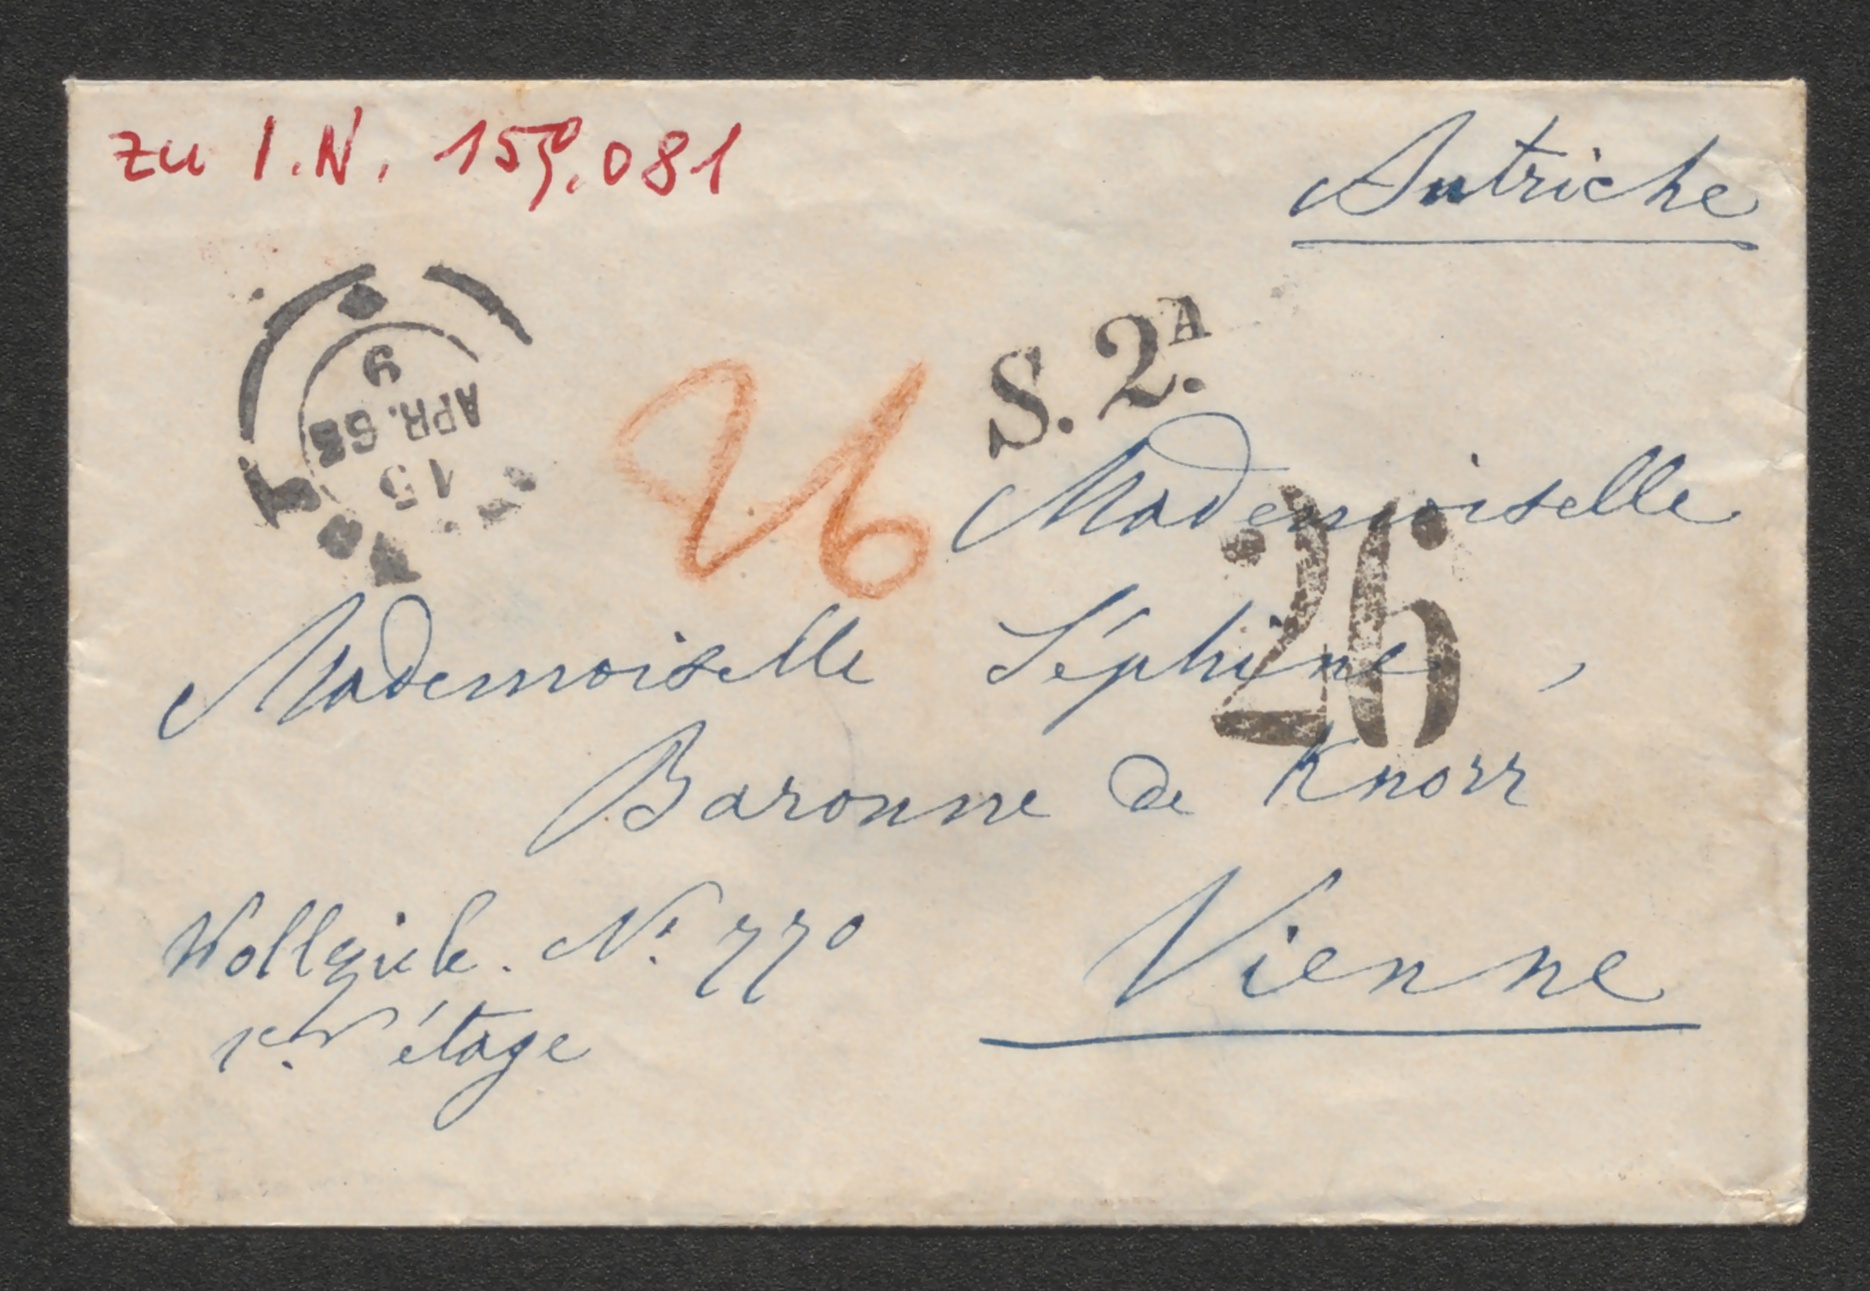 zu I.N. 159.081
Autriche
9
APR. 63
15
26
S. 2.A
Mademoiselle
26
Mademoiselle Séphine,
Baronne de Knorr
Wollzeile. No. 770
Vienne
1er étage